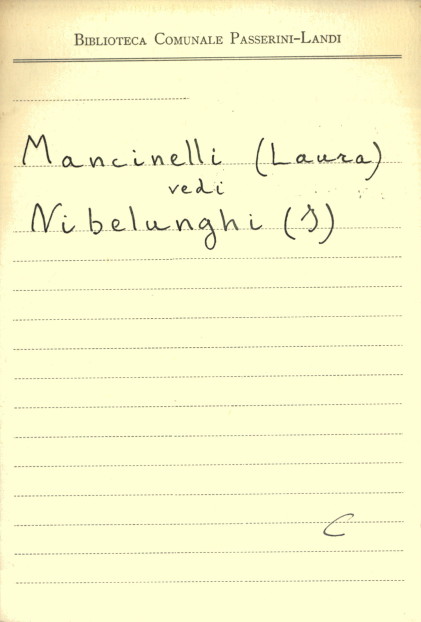 Biblioteca Comunale Passerini-Landi
Mancinelli (Laura)
vedi
Nibelunghi (I)
C